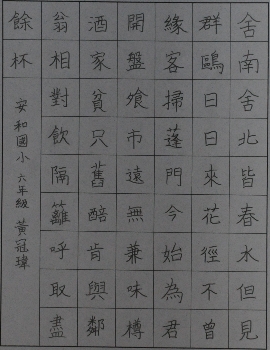 舍南舍北皆春水但見
群鷗日日來花徑不曾
緣客掃蓬門今始為君
開盤飧市遠無兼味樽
酒家貧只舊醅肯與鄰
翁相對飲隔籬呼取盡
餘杯
安和國小 六年級 黃冠瑋